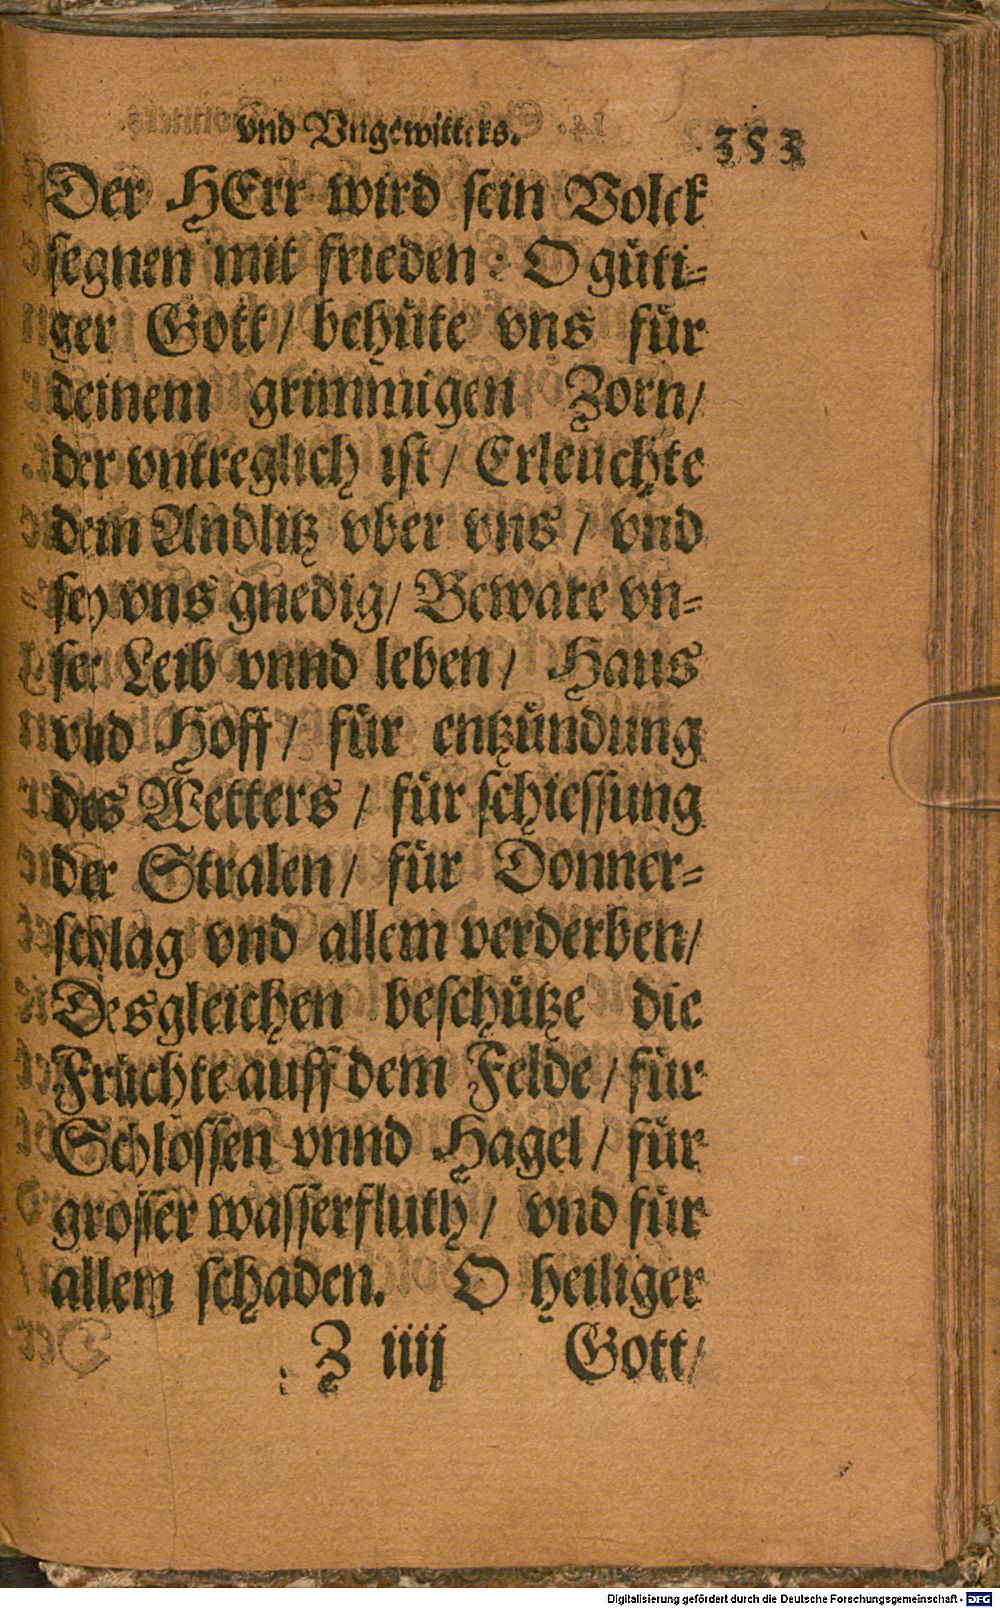 vnd Vngewitters. 353
Der HErr wird sein Volck
segnen mit frieden: O güti-
ger Gott/ behüte vns für
deinem grimmigen Zorn/
der vntreglich ist/ Erleuchte
dein Andlitz vber vns/ vnd
sey vns gnedig/ Beware vn-
ser Leib vnnd leben/ Haus
vnd Hoff/ für entzündung
des Wetters/ für schiessung
der Stralen/ für Donner-
schlag vnd allem verderben/
Desgleichen beschütze die
Früchte auff dem Felde/ für
Schlossen vnnd Hagel/ für
grosser wasserfluth/ vnd für
allem schaden. O heiliger
Z iiij Gott/
Digitalisierung gefördert durch die Deutsche Forschungsgemeinschaft - DFG